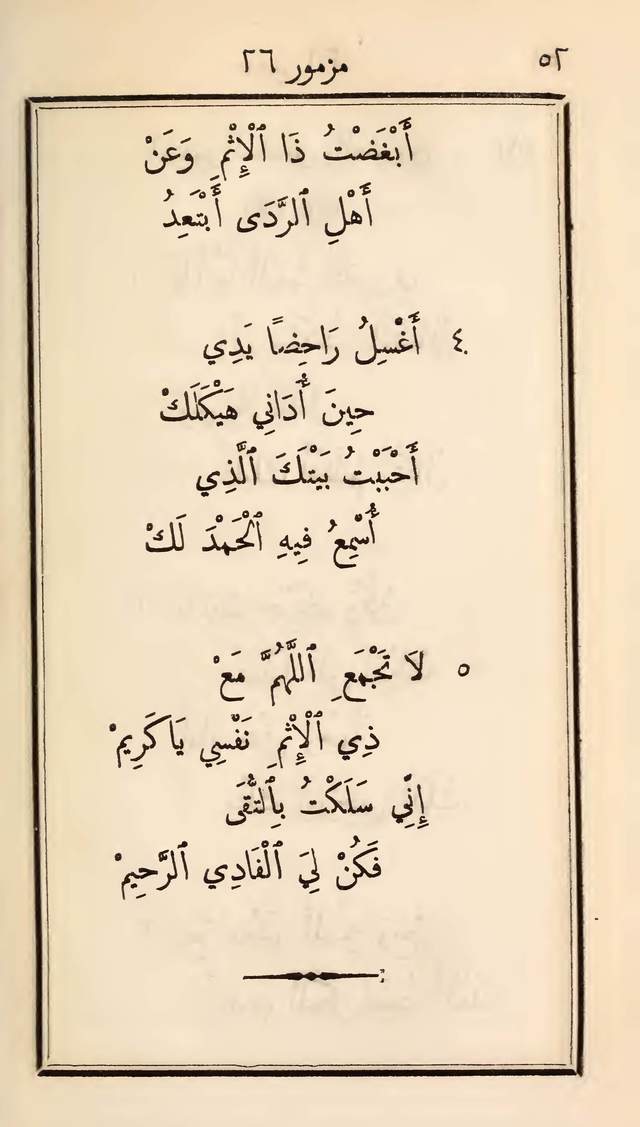 ٥٢ مزمور ٢٦
أَبْغَضْتُ ذَا ٱلْإِثْمِ وَعَنْ
أَهْلِ ٱلرَّدَى أَبْتَعِدُ
٤ أَغْسِلُ رَاحِضًا يَدِي
حِينَ أُدَانِي هَيْكَلَكْ
أَحْبَبْتُ بَيْتَكَ ٱلَّذِي
أُسْمِعُ فِيهِ ٱلْحَمْدَ لَكْ
٥ لَا تَجْمَعِ ٱللَّهُمَّ مَعْ
ذِي ٱلْإِثْمِ نَفْسِي يَا كَرِيمْ
إِنِّي سَلَكْتُ بِٱلتُّقَى
فَكُنْ لِيَ ٱلْفَادِي ٱلرَّحِيمْ